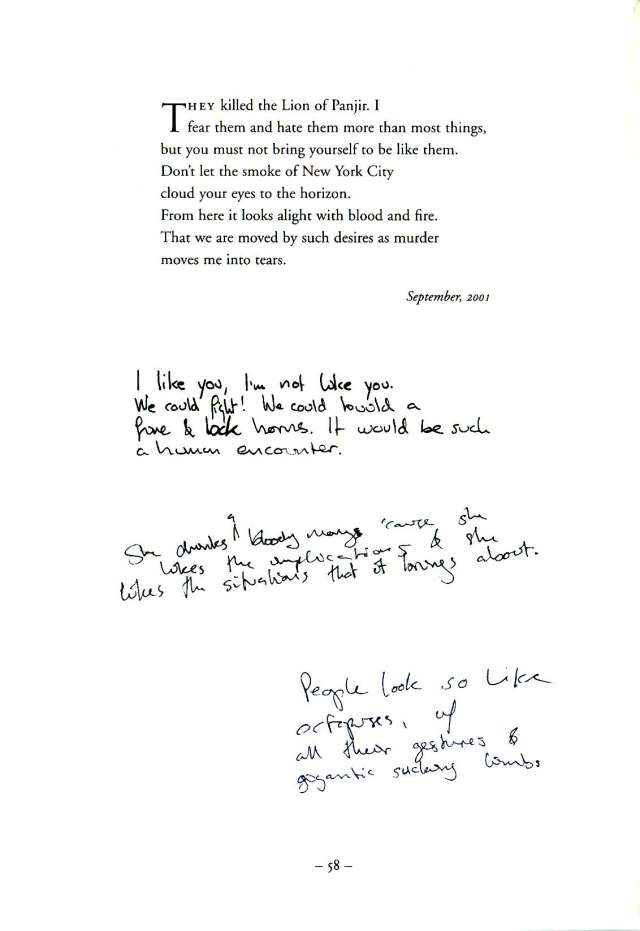 THEY killed the Lion of Panjir. I
fear them and hate them more than most things,
but you must not bring yourself to be like them.
Don't let the smoke of New York City
cloud your eyes to the horizon.
From here it looks alight with blood and fire.
That we are moved by such desires as murder
moves me into tears.
September, 2001
I like you, I'm not like you.
We could fight! We could build a
fire & lock horns. It would be such
a human encounter.
She drinks bloody marys 'cause she
likes the implications & she
likes the situations that it brings about.
People look so like
octopuses, w/
all their gestures &
gigantic sucking limbs
– 58 –